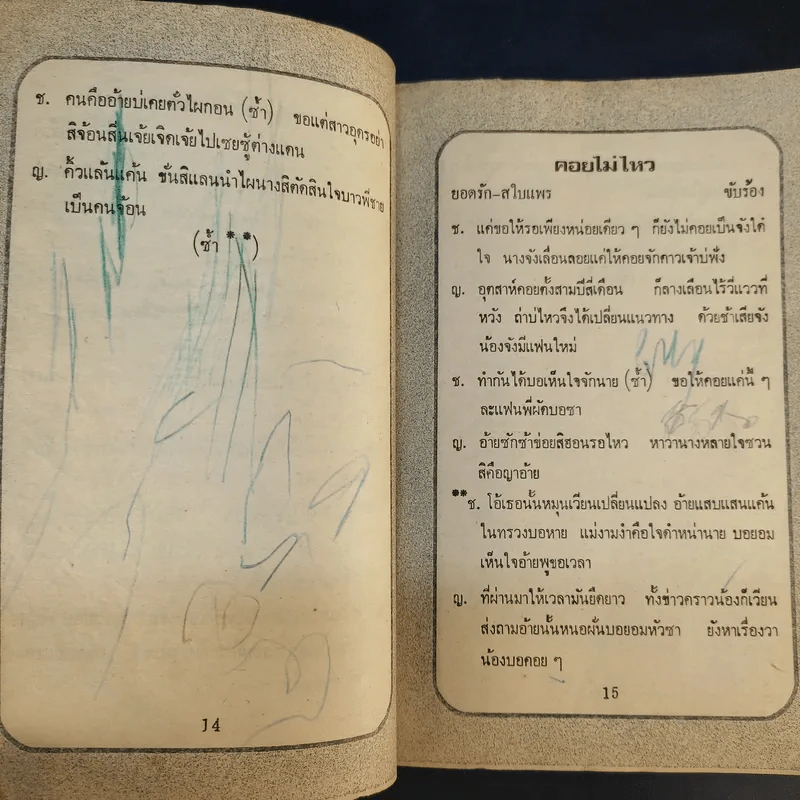 ช. คนคืออ้ายบ่เคยตั๋วไผกอน (ซ้ำ) ขอแต่สาวอุดรอย่า
สิจ้อนสิ่นเจ้ยเจิดเจ้ยไปเซยซู้ต่างแดน
ญ. คิ้วแล้นแค้น ขั่นสิแลนนำไผนางสิตัดสินใจบาวพี่ชาย
เป็นคนจ้อน
(ซ้ำ **)
14
คอยไม่ไหว
ยอดรัก-สใบแพร ขับร้อง
ช. แค่ขอให้รอเพียงหน่อยเดียว ๆ ก็ยังไม่คอยเป็นจังใด๋
ใจ นางจังเลื่อนลอยแค่ให้คอยจักดาวเจ้าบ่ฟัง
ญ. อุตสาห์คอยตั้งสามปีสี่เดือน ก็ลางเลือนไร้วี่แววที่
หวัง ถ่าบ่ไหวจึงได้เปลี่ยนแนวทาง ด้วยช้าเสียจัง
น้องจังมีแฟนใหม่
ช. ทำกันได้บอเห็นใจจักนาย (ซ้ำ) ขอให้คอยแค่นี้ ๆ
ละแฟนพี่ผัดบอซา
ญ. อ้ายซักซ้าซ่อยสิฮอนรอไหว หาวานางหลายใจซวน
สิคือญาอ้าย
**ช. โอ้เธอนั้นหมุนเวียนเปลี่ยนแปลง อ้ายแสบแสนแค้น
ในทรวงบอหาย แม่งามงำคือใจดำหน่านาย บอยอม
เห็นใจอ้ายพุขอเวลา
ญ. ที่ผ่านมาให้เวลามันยืดยาว ทั้งข่าวคราวน้องก็เวียน
ส่งถามอ้ายนั้นหนอผั่นบอยอมหัวซา ยังหาเรื่องวา
น้องบอคอย ๆ
15